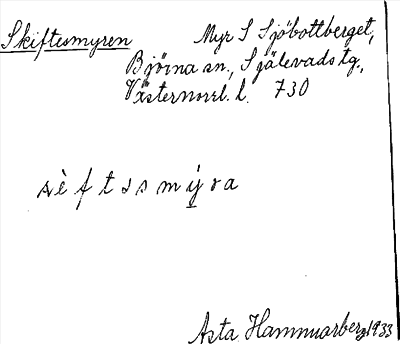 Skiftesmyren Myr S Sjöbottberget,
Björna sn., Själevads tg.,
Västernorrl. l. 730
sè f t s s m ý r a
Asta Hammarberg 1933